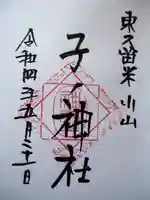 東久留米 小山
子ノ神社
令和四年五月三十一日